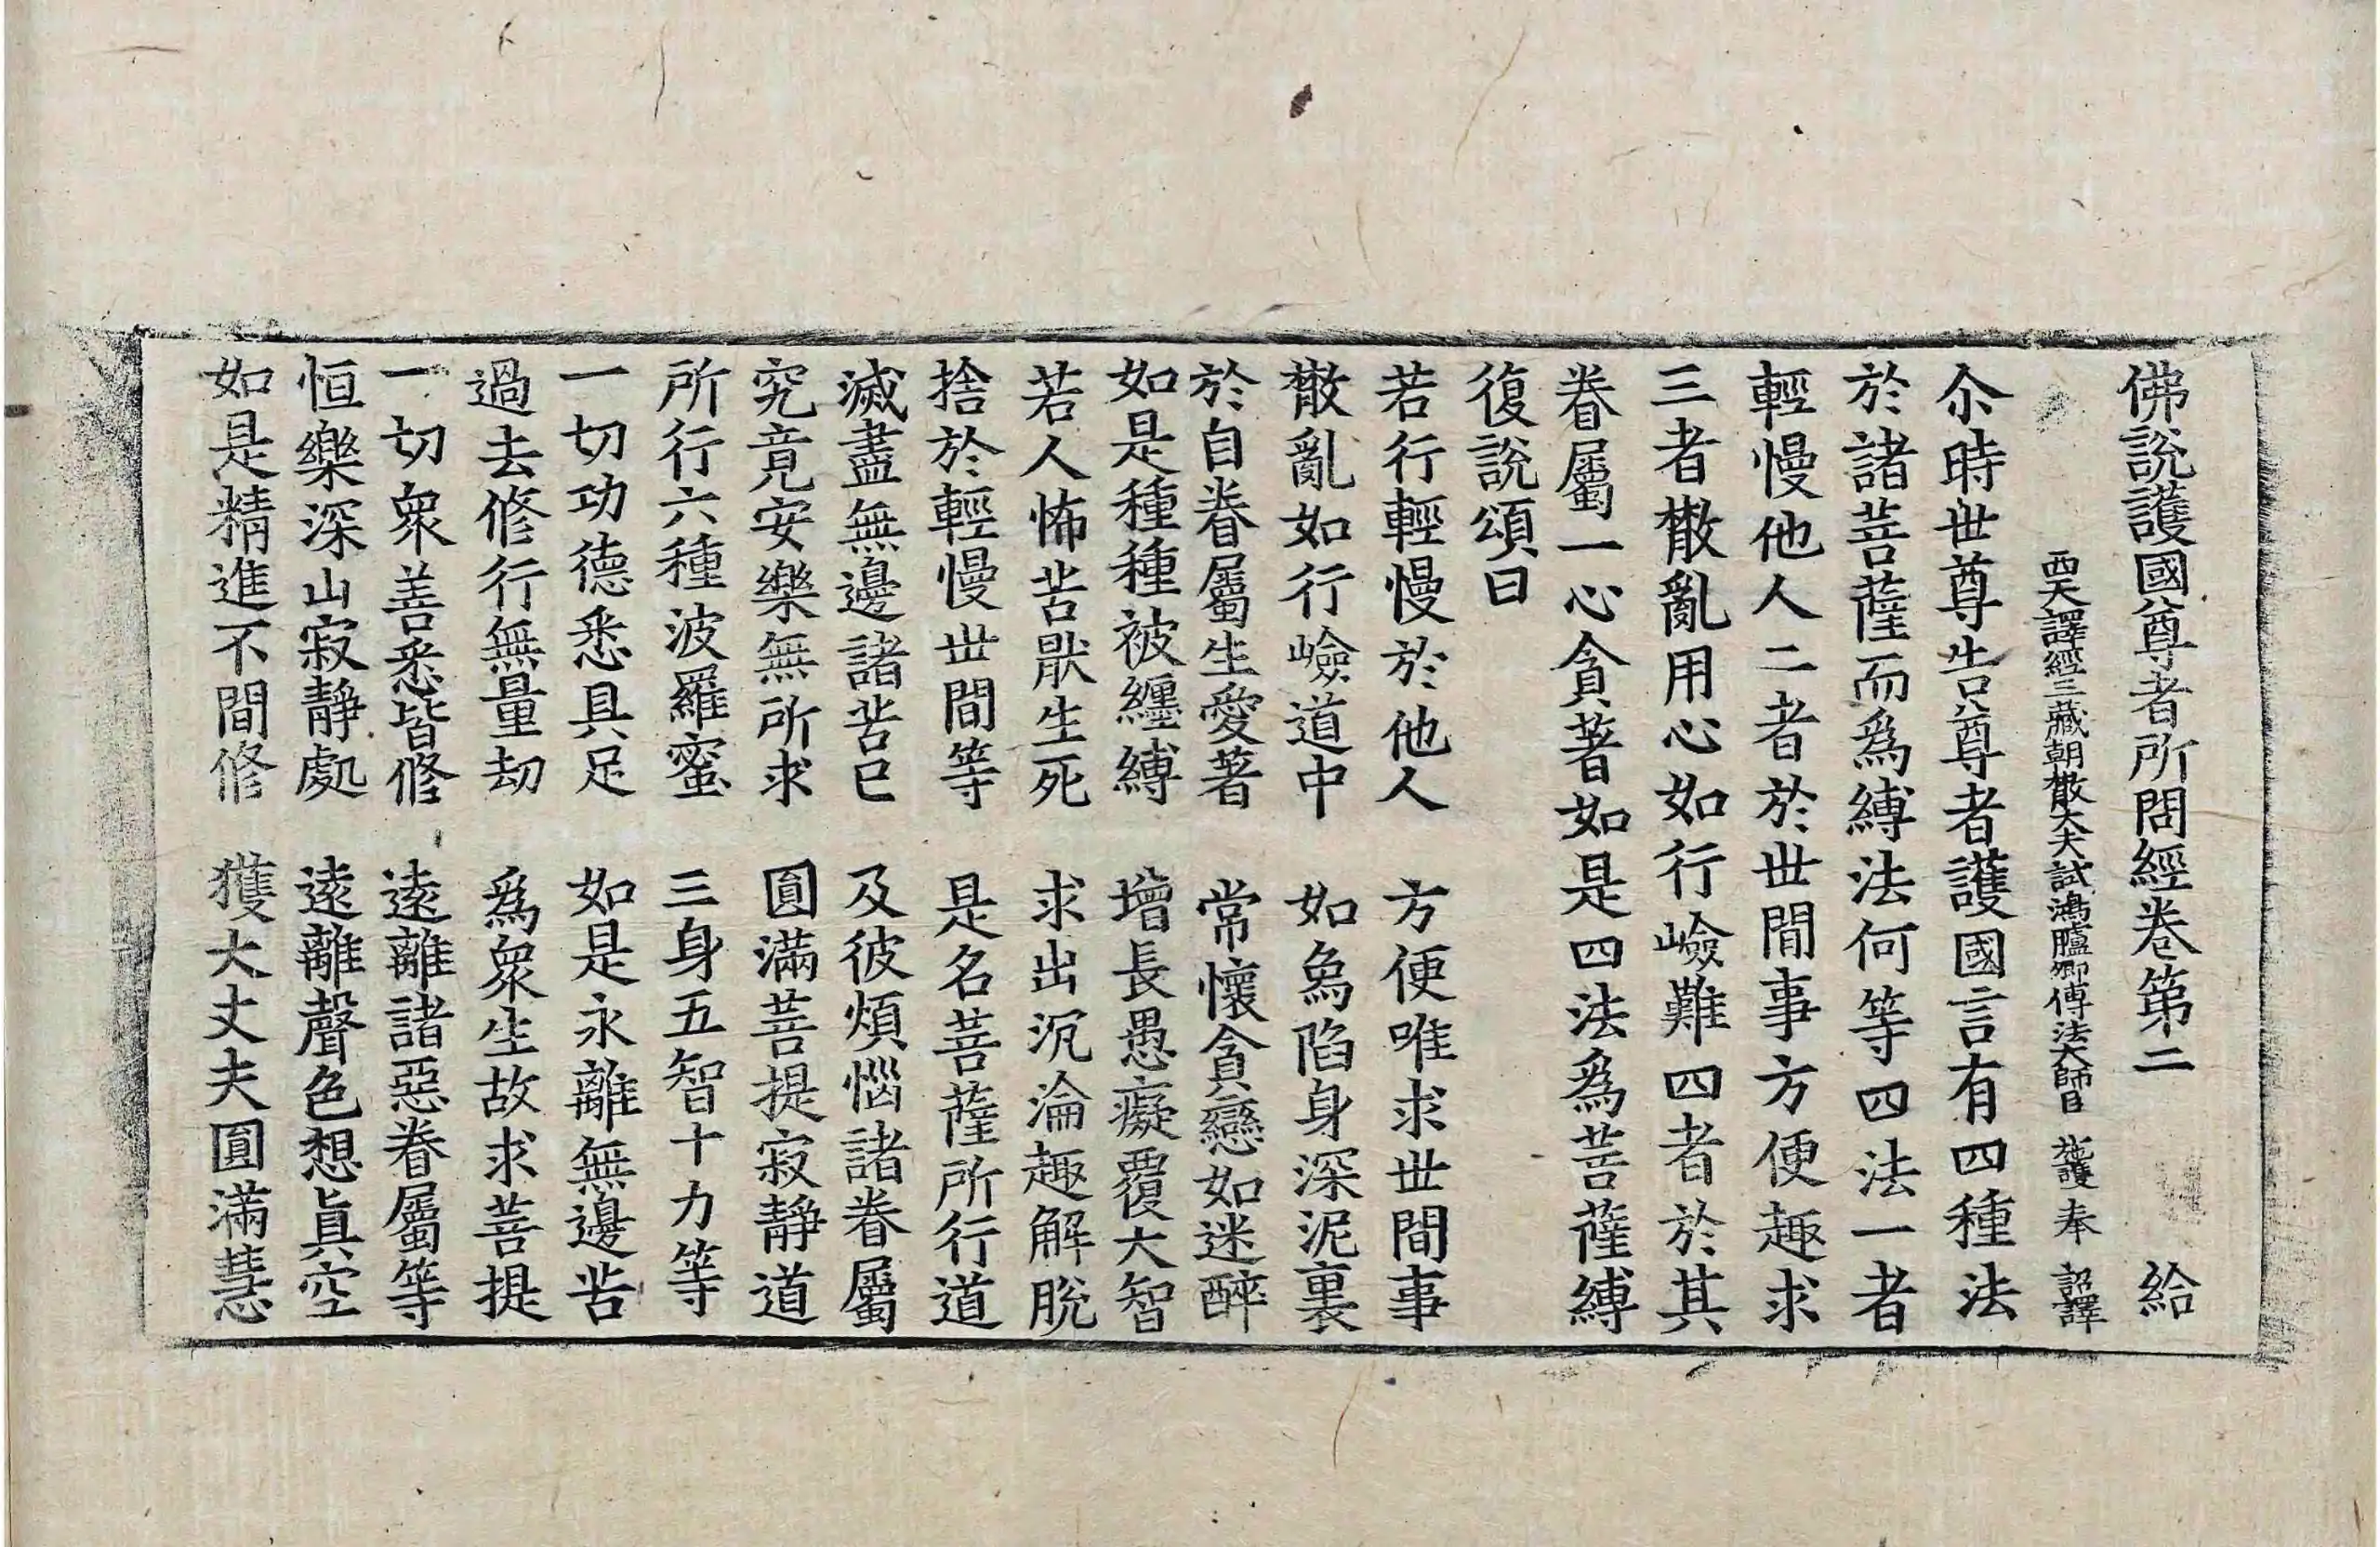 佛說護國尊者所問經卷第二 給
西天譯經三藏朝散大夫試鴻臚卿傅法大師臣 施護 奉 詔譯
尒時世尊告尊者護國言有四種法
於諸菩薩而爲縛法何等四法一者
輕慢他人二者於世間事方便趣求
三者散亂用心如行嶮難四者於其
眷屬一心貪著如是四法爲菩薩縛
復說頌曰
若行輕慢於他人 方便唯求世間事
散亂如行嶮道中 如象陷身深泥裏
於自眷屬生愛著 常懷貪戀如迷醉
如是種種被纏縛 增長愚癡覆大智
若人怖苦猒生死 求出沉淪趣解脫
捨於輕慢世間等 是名菩薩所行道
滅盡無邊諸苦已 及彼煩惱諸眷屬
究竟安樂無所求 圓滿菩提寂靜道
所行六種波羅蜜 三身五智十力等
一切功德悉具足 如是永離無邊苦
過去修行無量劫 爲衆生故求菩提
一切衆善悉皆修 遠離諸惡眷屬等
恒樂深山寂靜處 遠離聲色想眞空
如是精進不間修 獲大丈夫圓滿慧